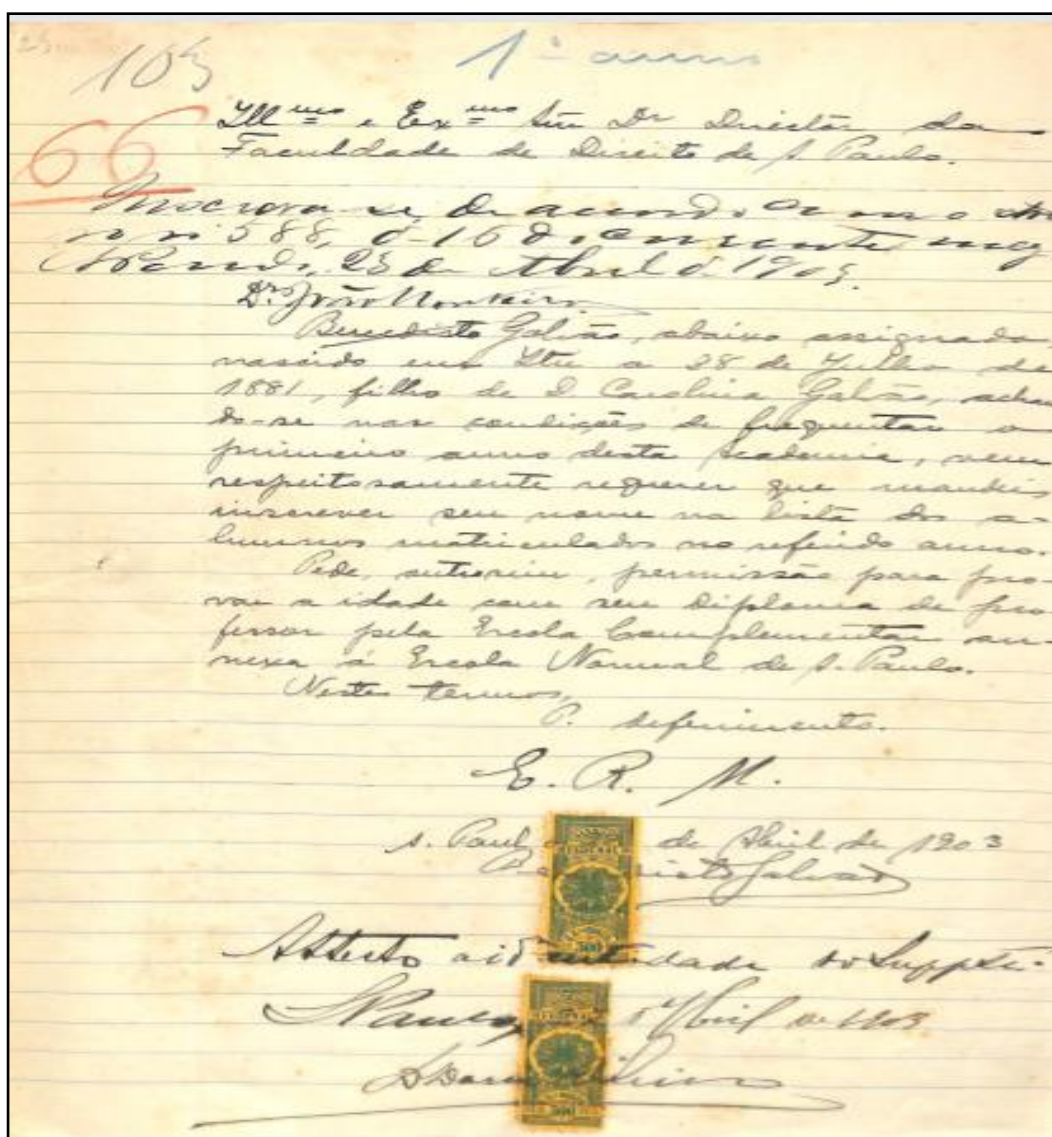 103
1º anno
66
Illmo e Exmo Snr Dr Director da
Faculdade de Direito de S. Paulo.
Inscreva-se, de accordo com o
588, d 16 do corrente
S Paulo, 23 de Abril d 1903.
Dr João Monteiro
Benedicto Galvão, abaixo assignado,
nascido em Ytu a 28 de Julho de
1881, filho de D. Carolina Galvão, achan
do-se nas condições de frequentar o
primeiro anno desta Academia, vem
respeitosamente requerer que mandeis
inscrever seu nome na lista dos a-
lumnos matriculados no referido anno.
Pede, outrosim, permissão para pro-
var a idade com seu diploma de pro
fessor pela Escola Complementar an-
nexa á Escola Normal de S. Paulo.
Nestes termos,
P. deferimento.
E. R. M.
S. Paul de Abril de 1903
Be dicto Galvão
Attesto a id tidade do Suppte.
S Paulo, Abril de 1903
300
300